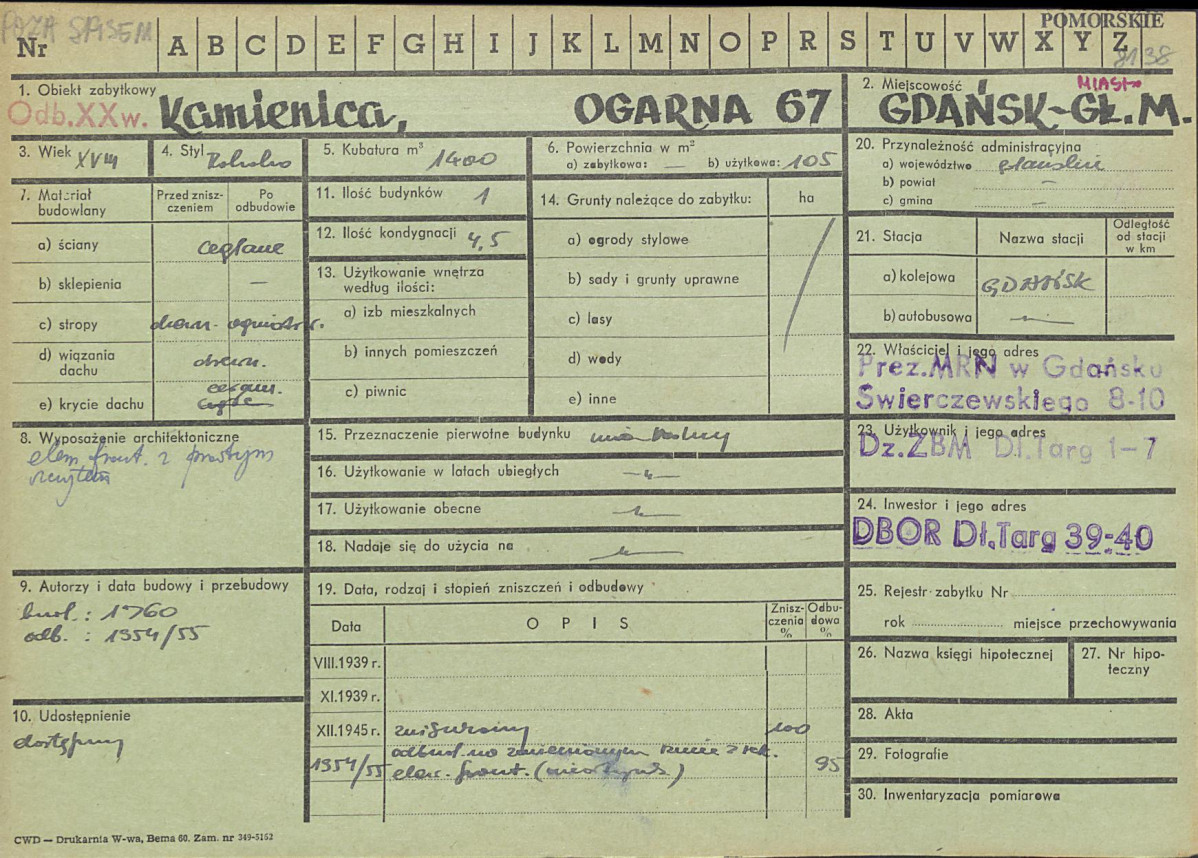 POZA SPISEM
Nr
A B C D E F G H I J K L M N O P R S T U V W X Y Z
POMORSKIE
8138
1. Obiekt zabytkowy
Odb. XXw. Kamienica, OGARNA 67
2. Miejscowość
MIASTO
GDAŃSK-GŁ.M.
3. Wiek XVIII
4. Styl
5. Kubatura m³ 1400
6. Powierzchnia w m²
a) zabytkowa: — b) użytkowa: 105
20. Przynależność administracyjna
a) województwo gdańskie
b) powiat —
c) gmina —
7. Materiał budowlany
Przed zniszczeniem
Po odbudowie
a) ściany ceglane
b) sklepienia —
c) stropy drewn. ogniotr.
d) wiązania dachu drewn.
e) krycie dachu
11. Ilość budynków 1
12. Ilość kondygnacji 4,5
13. Użytkowanie wnętrza według ilości:
a) izb mieszkalnych
b) innych pomieszczeń
c) piwnic
14. Grunty należące do zabytku: ha
a) ogrody stylowe
b) sady i grunty uprawne
c) lasy
d) wody
e) inne
21. Stacja
Nazwa stacji
Odległość od stacji w km
a) kolejowa GDAŃSK
b) autobusowa
22. Właściciel i jego adres
Prez.MRN w Gdańsku
Swierczewskiego 8-10
23. Użytkownik i jego adres
Dz.ZBM Dł.Targ 1-7
24. Inwestor i jego adres
DBOR Dł.Targ 39-40
8. Wyposażenie architektoniczne
elew. front. z prostym
15. Przeznaczenie pierwotne budynku mieszkalny
16. Użytkowanie w latach ubiegłych —"—
17. Użytkowanie obecne —"—
18. Nadaje się do użycia na —"—
9. Autorzy i data budowy i przebudowy
bud. : 1760
odb. : 1954/55
10. Udostępnienie
dostępny
19. Data, rodzaj i stopień zniszczeń i odbudowy
Data
OPIS
Zniszczenia %
Odbudowa %
VIII.1939 r.
XI.1939 r.
XII.1945 r. 100
odbud. na zmienionym rzucie z
1954/55 elew. front. 95
25. Rejestr zabytku Nr
rok miejsce przechowywania
26. Nazwa księgi hipotecznej
27. Nr hipoteczny
28. Akta
29. Fotografie
30. Inwentaryzacja pomiarowa
CWD — Drukarnia W-wa, Bema 60. Zam. nr 349-5162